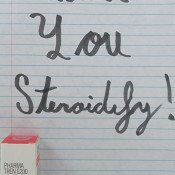 You
Steroidify!
PHARMA
TREN E200